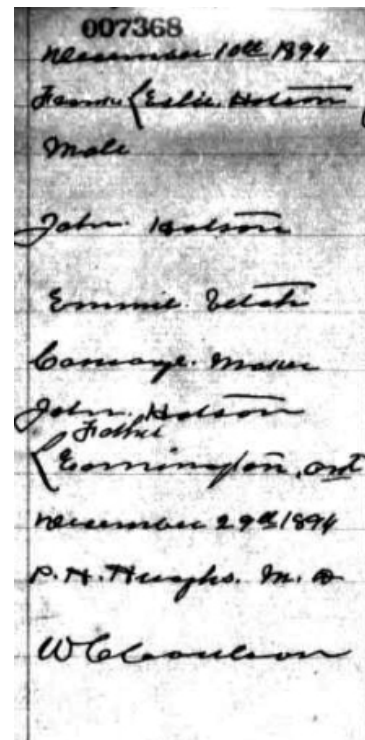 007368
December 10th 1894
Eslie Hotson
Male
John Hotson
Emmie Veitch
Carriage Maker
John Hotson
Father
Cannington, Ont
December 29th 1894
P. H. Hughs. M. D
W C Coulson